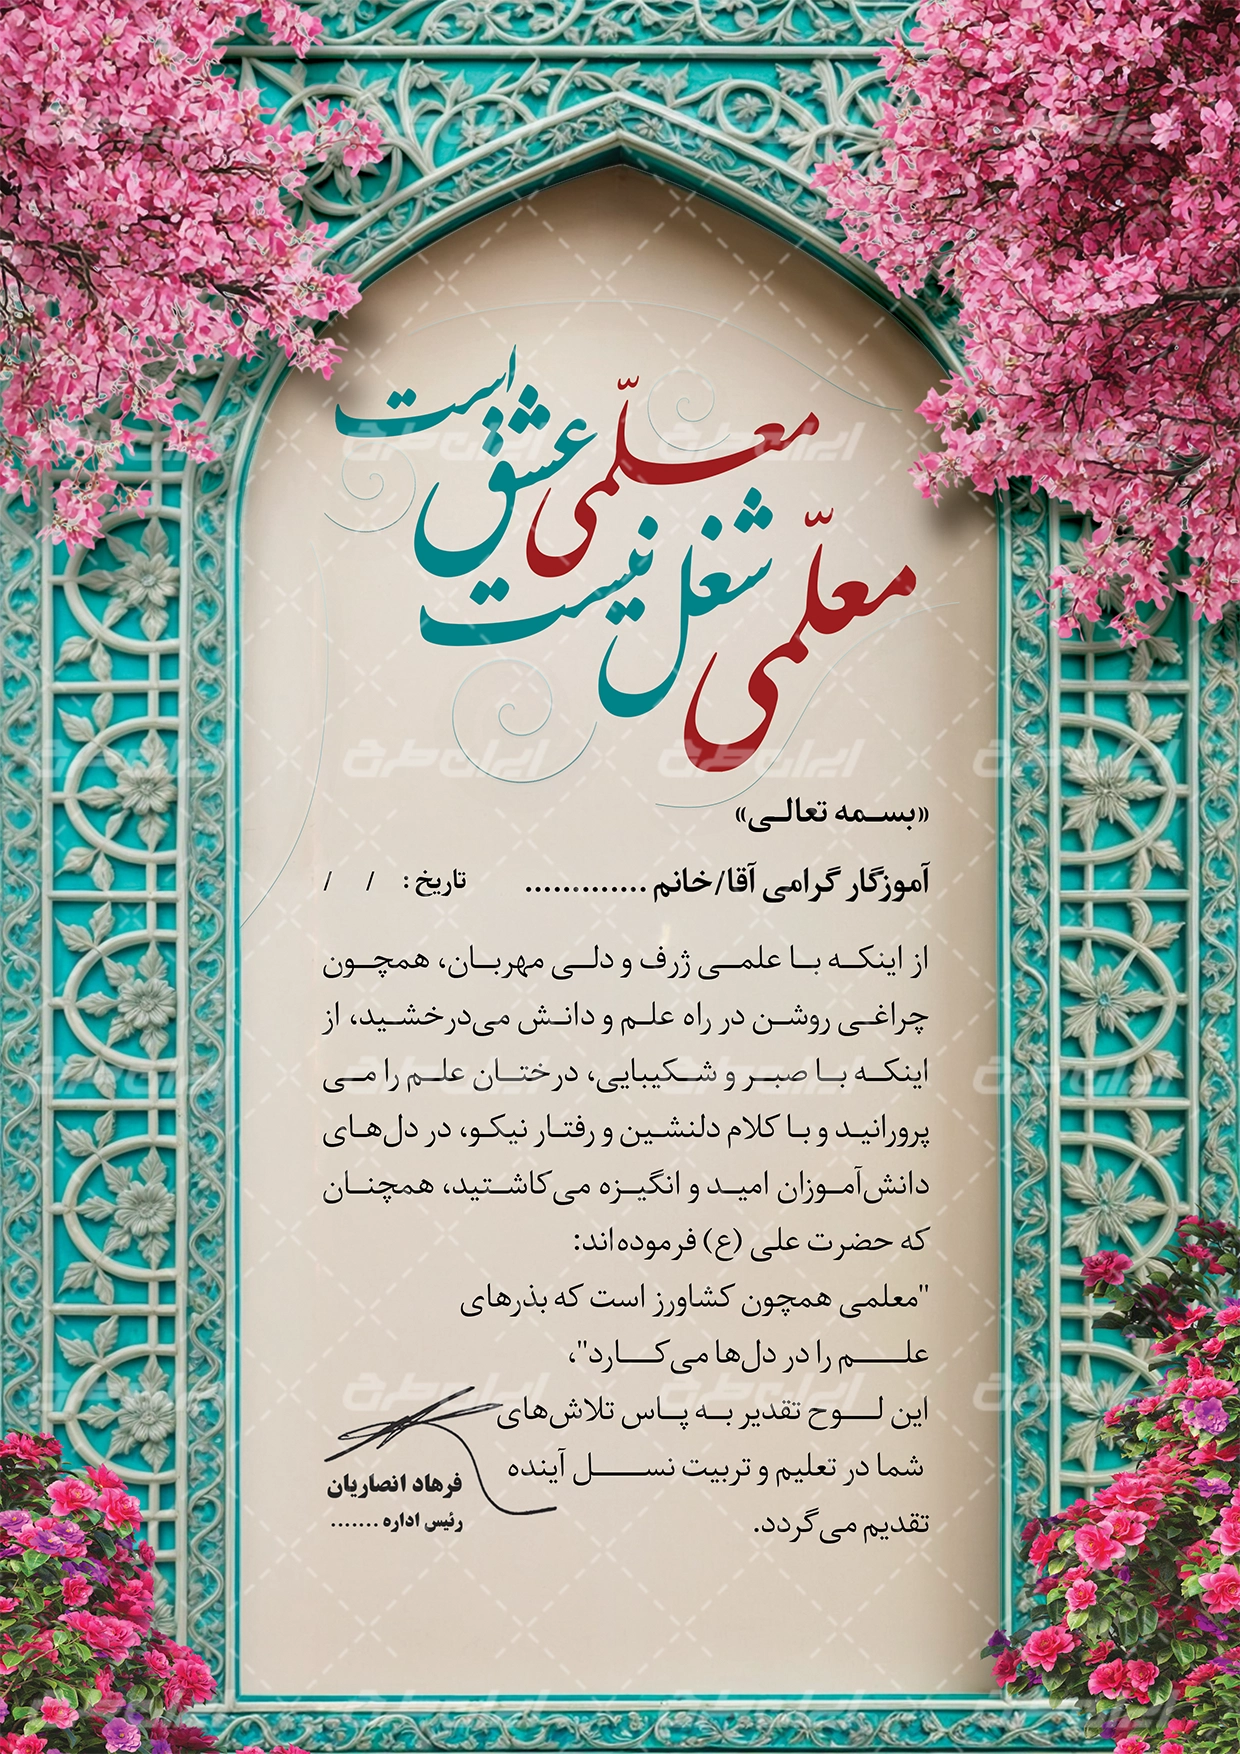 معلّمی شغل نیست
معلّمی عشق است
«بسمه تعالی»
آموزگار گرامی آقا/خانم .............
تاریخ :   /   /
از اینکه با علمی ژرف و دلی مهربان، همچون
چراغی روشن در راه علم و دانش می‌درخشید، از
اینکه با صبر و شکیبایی، درختان علم را می
پرورانید و با کلام دلنشین و رفتار نیکو، در دل‌های
دانش‌آموزان امید و انگیزه می‌کاشتید، همچنان
که حضرت علی (ع) فرموده‌اند:
"معلمی همچون کشاورز است که بذرهای
علم را در دل‌ها می‌کارد"،
این لوح تقدیر به پاس تلاش‌های
شما در تعلیم و تربیت نسل آینده
تقدیم می‌گردد.
فرهاد انصاریان
رئیس اداره .......
ایران طرح